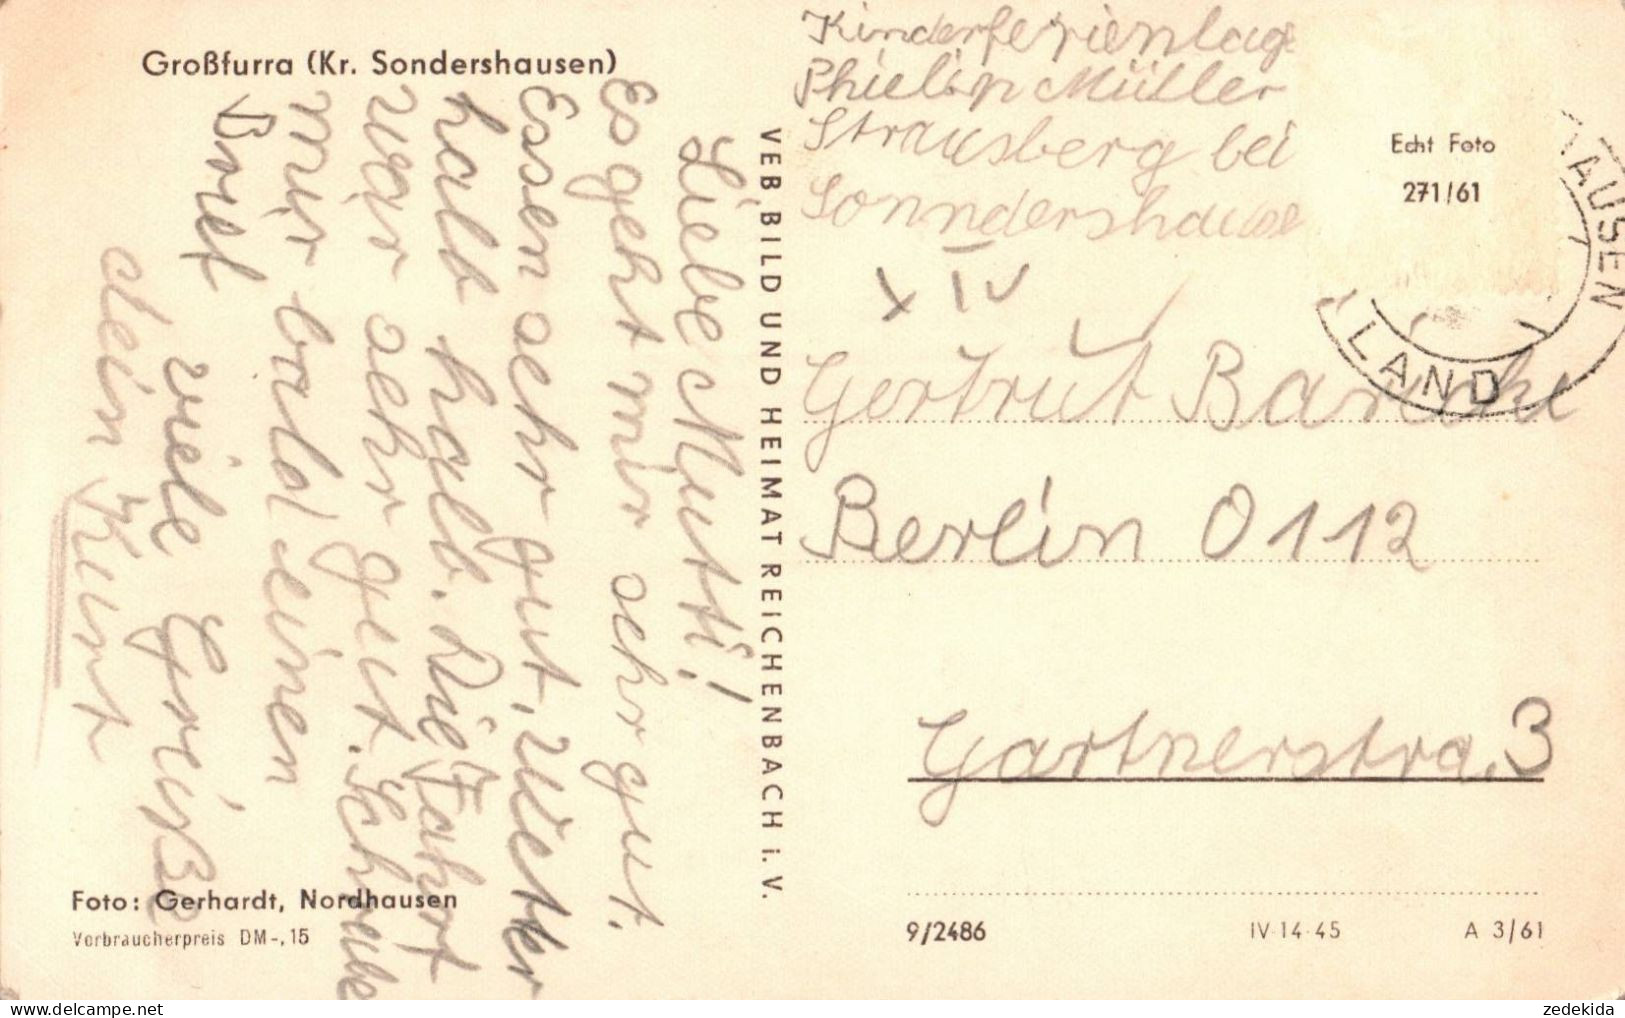 Großfurra (Kr. Sondershausen)
Liebe Mutti!
Es geht mir sehr gut.
Essen sehr gut, Wetter
halb halb. Die Fahrt
war sehr gut. Schreibe
mir bald einen
Brief
viele Grüße
dein Kurt
Foto: Gerhardt, Nordhausen
Verbraucherpreis DM -,15
VEB BILD UND HEIMAT REICHENBACH i. V.
Kinderferienlage
Phielipp Müller
Strausberg bei
Sonndershause
XIV
Echt Foto
271/61
HAUSEN
LAND
Gertrut
Berlin O 112
Gartnerstra. 3
9/2486
IV-14-45
A 3/61
zedekida